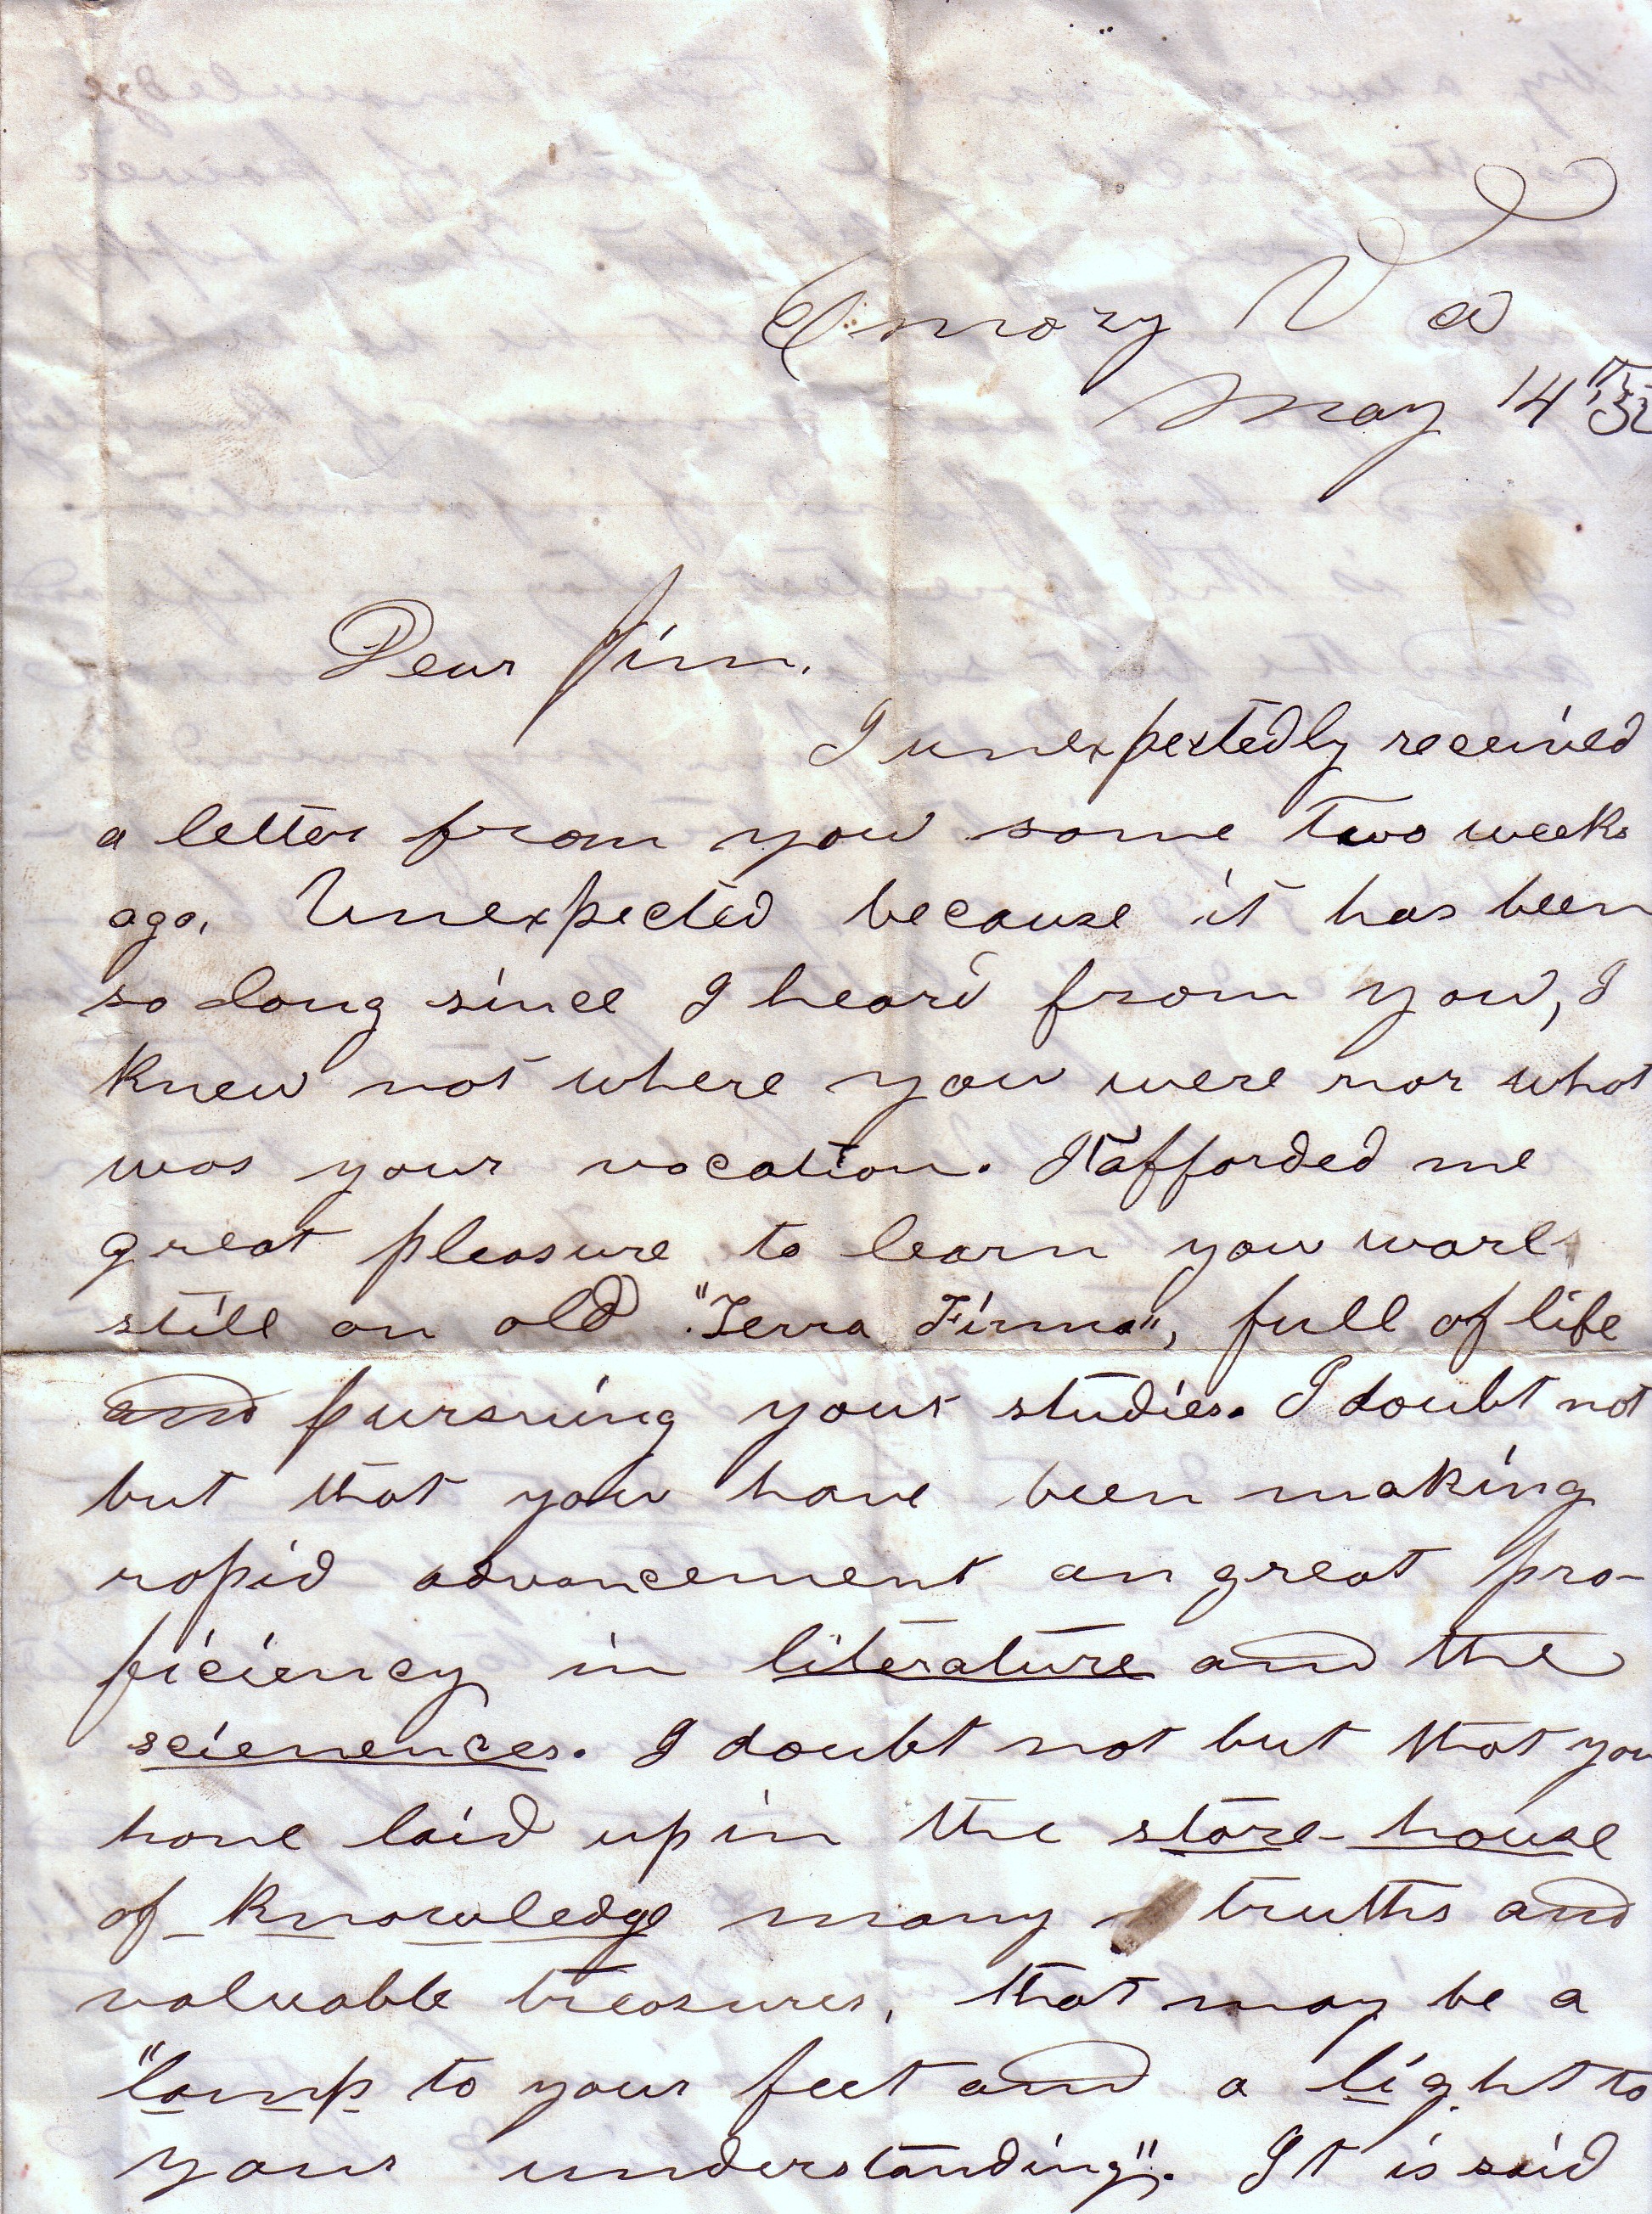 Emory Va
May 14th
Dear Jim.
I unexpectedly received
a letter from you some two weeks
ago. Unexpected because it has been
so long since I heard from you, I
knew not where you were nor what
was your vocation. It afforded me
great pleasure to learn you ware
still on old "Terra Firma", full of life
and pursuing your studies. I doubt not
but that you have been making
rapid advancement an great pro-
ficiency in literature and the
scienences. I doubt not but that you
have laid up in the store-house
of knowledge many truths and
valuable treasures, that may be a
"lamp to your feet and a light to
your understanding". It is said